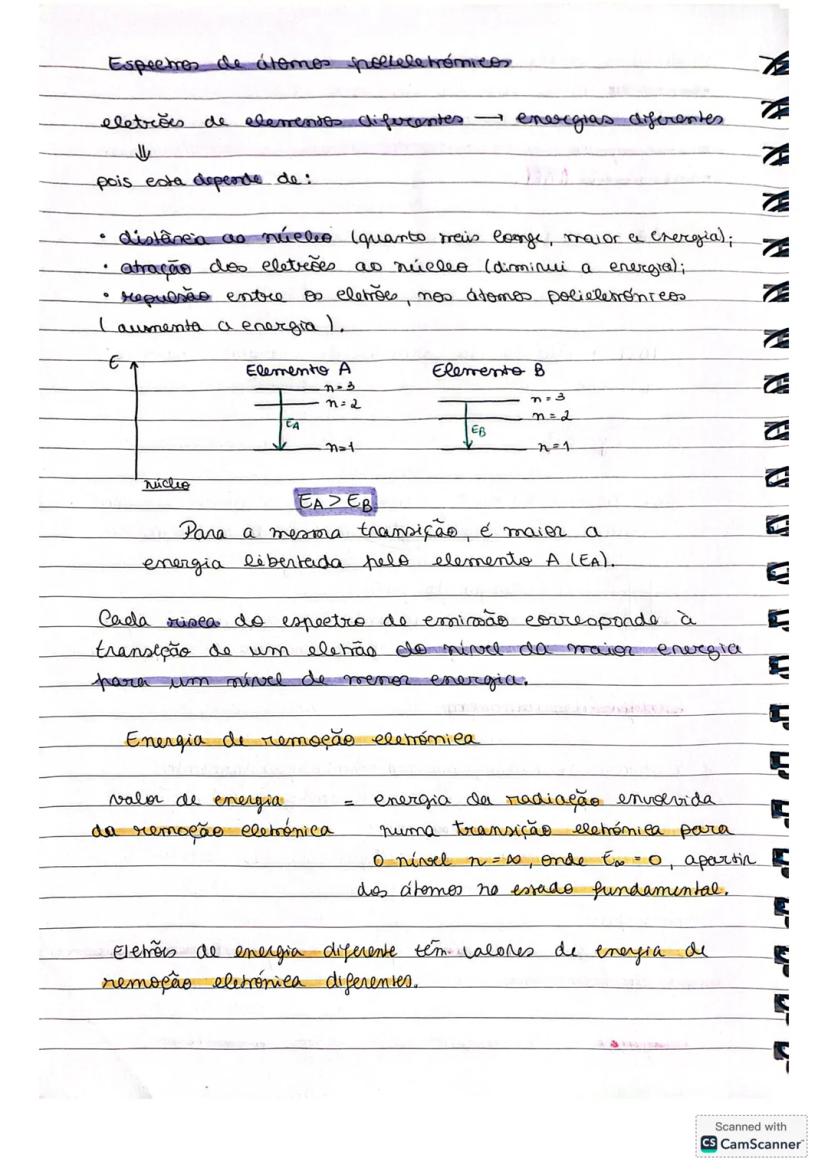 Espectros de átomos polieletrónicos
eletrões de elementos diferentes → energias diferentes
⇓
pois esta depende de:
• distância ao núcleo (quanto mais longe, maior a energia);
• atração dos eletrões ao núcleo (diminui a energia);
• repulsão entre os eletrões, nos átomos polieletrónicos
(aumenta a energia).
E
Elemento A Elemento B
n=3 n=3
n=2 n=2
EA EB
n=1 n=1
núcleo
EA > EB
Para a mesma transição, é maior a
energia libertada pelo elemento A (EA).
Cada risca do espectro de emissão corresponde à
transição de um eletrão do nível da maior energia
para um nível de menor energia.
Energia de remoção eletrónica
valor de energia = energia da radiação envolvida
da remoção eletrónica numa transição eletrónica para
o nível n=∞, onde E∞=0, apartir
dos átomos no estado fundamental.
Eletrões de energia diferente têm valores de energia de
remoção eletrónica diferentes.
Scanned with
CS CamScanner